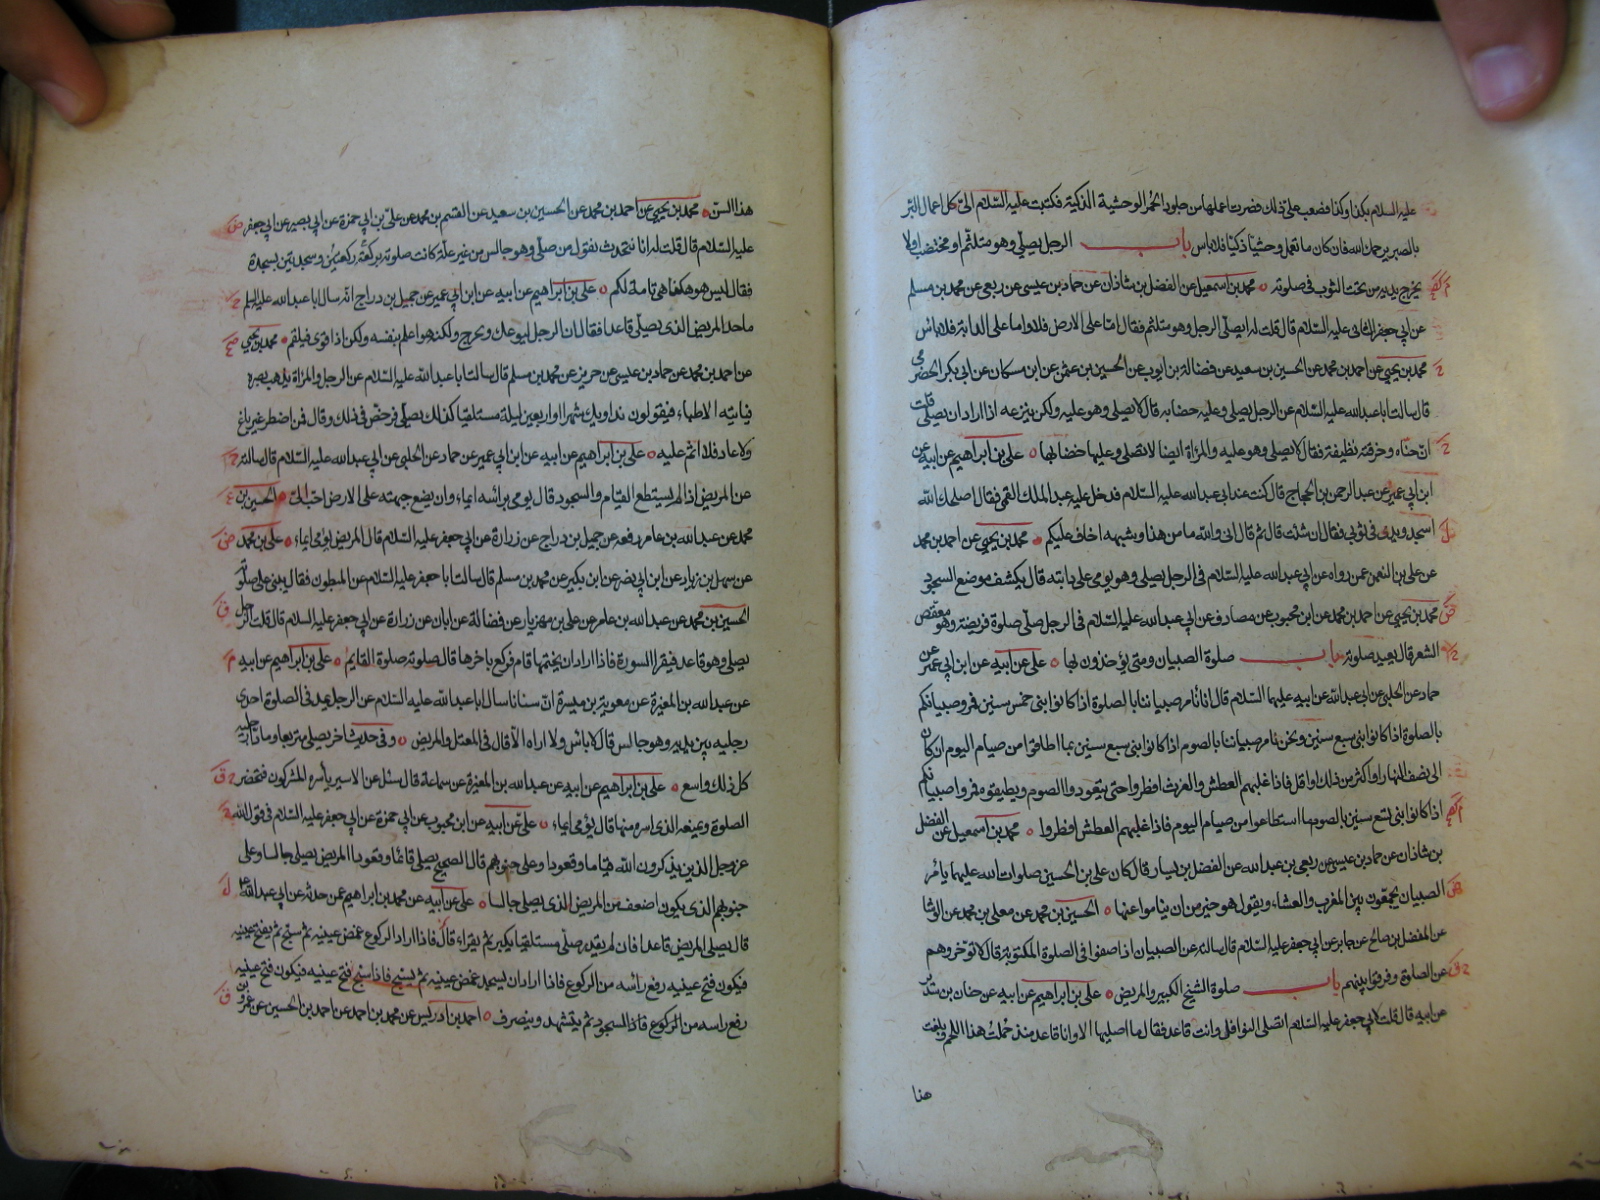 عليه السلام بكذا وكذا فصعب علي ذلك فصرت اعملها من جلود الحمر الوحشية الذكية فكتبت عليه السلام الي كل اعمال البر
بالصبر يرحمك الله فان كان ما تعمل وحشيا ذكيا فلا باس باب الرجل يصلي وهو متلثم او مختضب اولا
يخرج يديه من تحت الثوب في صلوته محمد بن اسمعيل عن الفضل بن شاذان عن حماد بن عيسى عن ربعي عن محمد بن مسلم
عن ابي جعفر الثاني عليه السلام قال قلت له ايصلي الرجل وهو متلثم فقال اما على الارض فلا واما على الدابة فلا باس
محمد بن يحيى عن احمد بن محمد عن الحسين بن سعيد عن فضالة بن ايوب عن الحسين بن عثمن عن ابن مسكان عن ابي بكر الحضرمي
قال سالت ابا عبد الله عليه السلام عن الرجل يصلي وعليه خضابه قال لا يصلي وهو عليه ولكن ينزعه اذا اراد ان يصلي قلت
ان حناه وخرقته نظيفة فقال لا يصلي وهو عليه والمراة ايضا لا تصلي وعليها خضابها علي بن ابراهيم عن ابيه عن
ابن ابي عمير عن عبد الرحمن بن الحجاج قال كنت عند ابي عبد الله عليه السلام فدخل عليه عبد الملك القمي فقال اصلحك الله
اسجد ويدي في ثوبي فقال ان شئت قال ثم قال اني والله ما من هذا وشبهه اخاف عليكم محمد بن يحيى عن احمد بن محمد
عن علي بن النعمن عمن رواه عن ابي عبد الله عليه السلام في الرجل يصلي وهو يومي على دابته قال يكشف موضع السجود
محمد بن يحيى عن احمد بن محمد عن ابن محبوب عن مصادف عن ابي عبد الله عليه السلام في الرجل صلى صلوة فريضة وهو معقص
الشعر قال يعيد صلوته باب صلوة الصبيان ومتى يؤخذون بها علي عن ابيه عن ابن ابي عمير عن
حماد عن الحلبي عن ابي عبد الله عن ابيه عليهما السلام قال انا نامر صبياننا بالصلوة اذا كانوا بني خمس سنين فمروا صبيانكم
بالصلوة اذا كانوا بني سبع سنين ونحن نامر صبياننا بالصوم اذا كانوا بني سبع سنين بما اطاقوا من صيام اليوم ان كان
الى نصف النهار او اكثر من ذلك او اقل فاذا غلبهم العطش والغرث افطروا حتى يتعودوا الصوم ويطيقوه فمروا صبيانكم
اذا كانوا بني تسع سنين بالصوم ما استطاعوا من صيام اليوم فاذا غلبهم العطش افطروا محمد بن اسمعيل عن الفضل
بن شاذان عن حماد بن عيسى عن ربعي بن عبد الله عن الفضل بن يسار قال كان علي بن الحسين صلوات الله عليهما يامر
الصبيان يجمعون بين المغرب والعشاء ويقول هو خير من ان يناموا عنها الحسين بن محمد عن معلى بن محمد عن الوشا
عن المفضل بن صالح عن جابر عن ابي جعفر عليه السلام قال سالته عن الصبيان اذا صفوا في الصلوة المكتوبة قال لا تؤخروهم
عن الصلوة وفرقوا بينهم باب صلوة الشيخ الكبير والمريض علي بن ابراهيم عن ابيه عن حنان بن سدير
عن ابيه قال قلت لابي جعفر عليه السلام اتصلي النوافل وانت قاعد فقال ما اصليها الا وانا قاعد منذ حملت هذا اللحم وبلغت
هذا
هذا السن محمد بن يحيى عن احمد بن محمد عن الحسين بن سعيد عن القسم بن محمد عن علي بن ابي حمزة عن ابي بصير عن ابي جعفر
عليه السلام قال قلت له انا نتحدث نقول من صلى وهو جالس من غير علة كانت صلوته بركعة ركعتين وسجدتين بسجدة
فقال ليس هو هكذا هي تامة لكم علي بن ابراهيم عن ابيه عن ابن ابي عمير عن جميل بن دراج انه سال ابا عبد الله عليه السلم
ما حد المريض الذي يصلي قاعدا فقال ان الرجل ليوعك ويحرج ولكنه هو اعلم بنفسه ولكن اذا قوى فليقم محمد بن يحيى
عن احمد بن محمد عن حماد بن عيسى عن حريز عن محمد بن مسلم قال سالت ابا عبد الله عليه السلام عن الرجل والمراة يذهب بصره
فياتيه الاطباء فيقولون نداويك شهرا او اربعين ليلة مستلقيا كذلك يصلي فرخص في ذلك وقال فمن اضطر غير باغ
ولا عاد فلا اثم عليه علي بن ابراهيم عن ابيه عن ابن ابي عمير عن حماد عن الحلبي عن ابي عبد الله عليه السلام قال سالته
عن المريض اذا لم يستطع القيام والسجود قال يومي براسه ايماء وان يضع جبهته على الارض احب الي الحسين بن
محمد عن عبد الله بن عامر رفعه عن جميل بن دراج عن زرارة عن ابي جعفر عليه السلام قال المريض يؤمي ايماء علي بن محمد
عن سهل بن زياد عن ابن ابي نصر عن ابن بكير عن محمد بن مسلم قال سالت ابا جعفر عليه السلام عن المبطون فقال يبني على صلوته
الحسين بن محمد عن عبد الله بن عامر عن علي بن مهزيار عن فضالة عن ابان عن زرارة عن ابي جعفر عليه السلام قال قلت الرجل
يصلي وهو قاعد فيقرا السورة فاذا اراد ان يختمها قام فركع باخرها قال صلوته صلوة القايم علي بن ابراهيم عن ابيه
عن عبد الله بن المغيرة عن معوية بن ميسرة ان سنانا سال ابا عبد الله عليه السلام عن الرجل يمد في الصلوة احدى
رجليه بين يديه وهو جالس قال لا باس ولا اراه الا قال في المعتل والمريض وفي حديث اخر يصلي متربعا ومادا رجليه
كل ذلك واسع علي بن ابراهيم عن ابيه عن عبد الله بن المغيرة عن سماعة قال سئل عن الاسير ياسره المشركون فتحضر
الصلوة ويمنعه الذي اسره منها قال يؤمي ايماء علي عن ابيه عن ابن محبوب عن ابي حمزة عن ابي جعفر عليه السلام في قول الله
عز وجل الذين يذكرون الله قياما وقعودا وعلى جنوبهم قال الصحيح يصلي قائما وقعودا المريض يصلي جالسا وعلى
جنوبهم الذي يكون اضعف من المريض الذي يصلي جالسا علي عن ابيه عن محمد بن ابراهيم عمن حدثه عن ابي عبد الله
قال يصلي المريض قاعدا فان لم يقدر صلى مستلقيا يكبر ثم يقراء قال فاذا اراد الركوع غمض عينيه ثم سبح ثم يفتح عينيه
فيكون فتح عينيه رفع راسه من الركوع فاذا اراد ان يسجد غمض عينيه ثم يسبح فاذا سبح فتح عينيه فيكون فتح عينيه
رفع راسه من الركوع فاذا السجود ثم يتشهد وينصرف احمد بن ادريس عن محمد بن احمد عن احمد بن الحسين عن عمرو بن